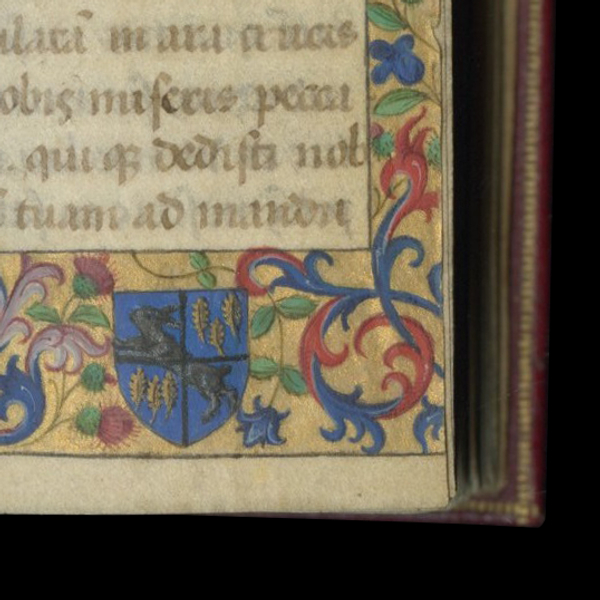 ulatā in ara crucis
obis miseris pecca
qui q̄ꝫ dedisti nob
tuam ad mandu